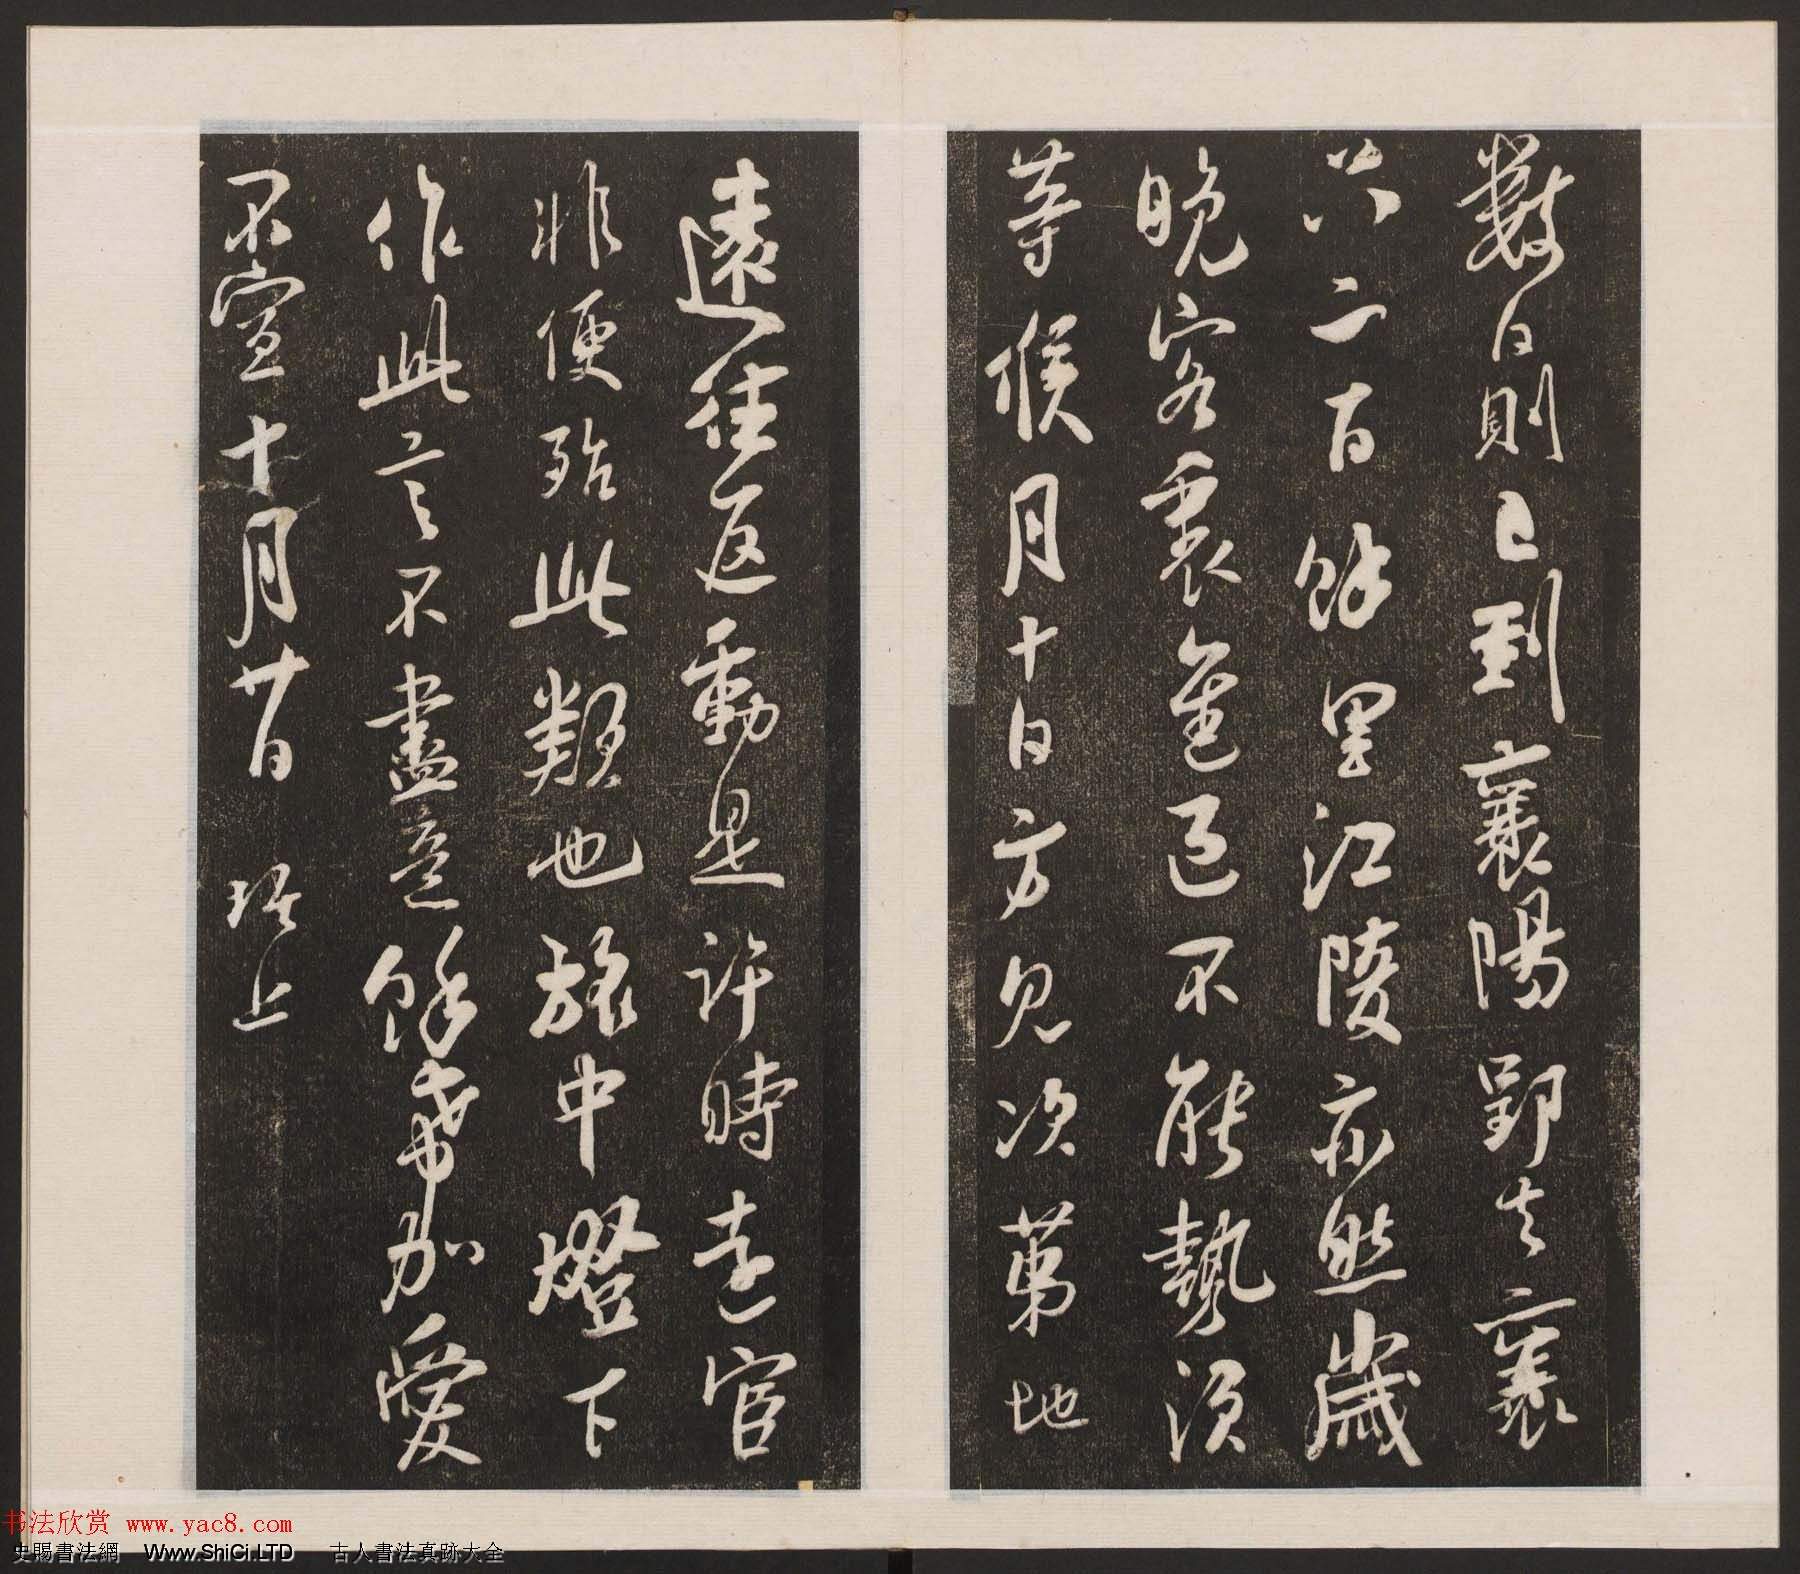 數日則已到襄陽郢去襄
二百餘里江陵亦然歲
晚客裏進退不能勢須
等候月十日方見次第地
遠往返動是許時遠官
非便殆此類也旅中燈下
作此言不盡意餘希加愛
不宣十月廿日 上
书法欣赏 www.yac8.com
史賜書法網 Www.ShiCi.LTD 古人書法真跡大全